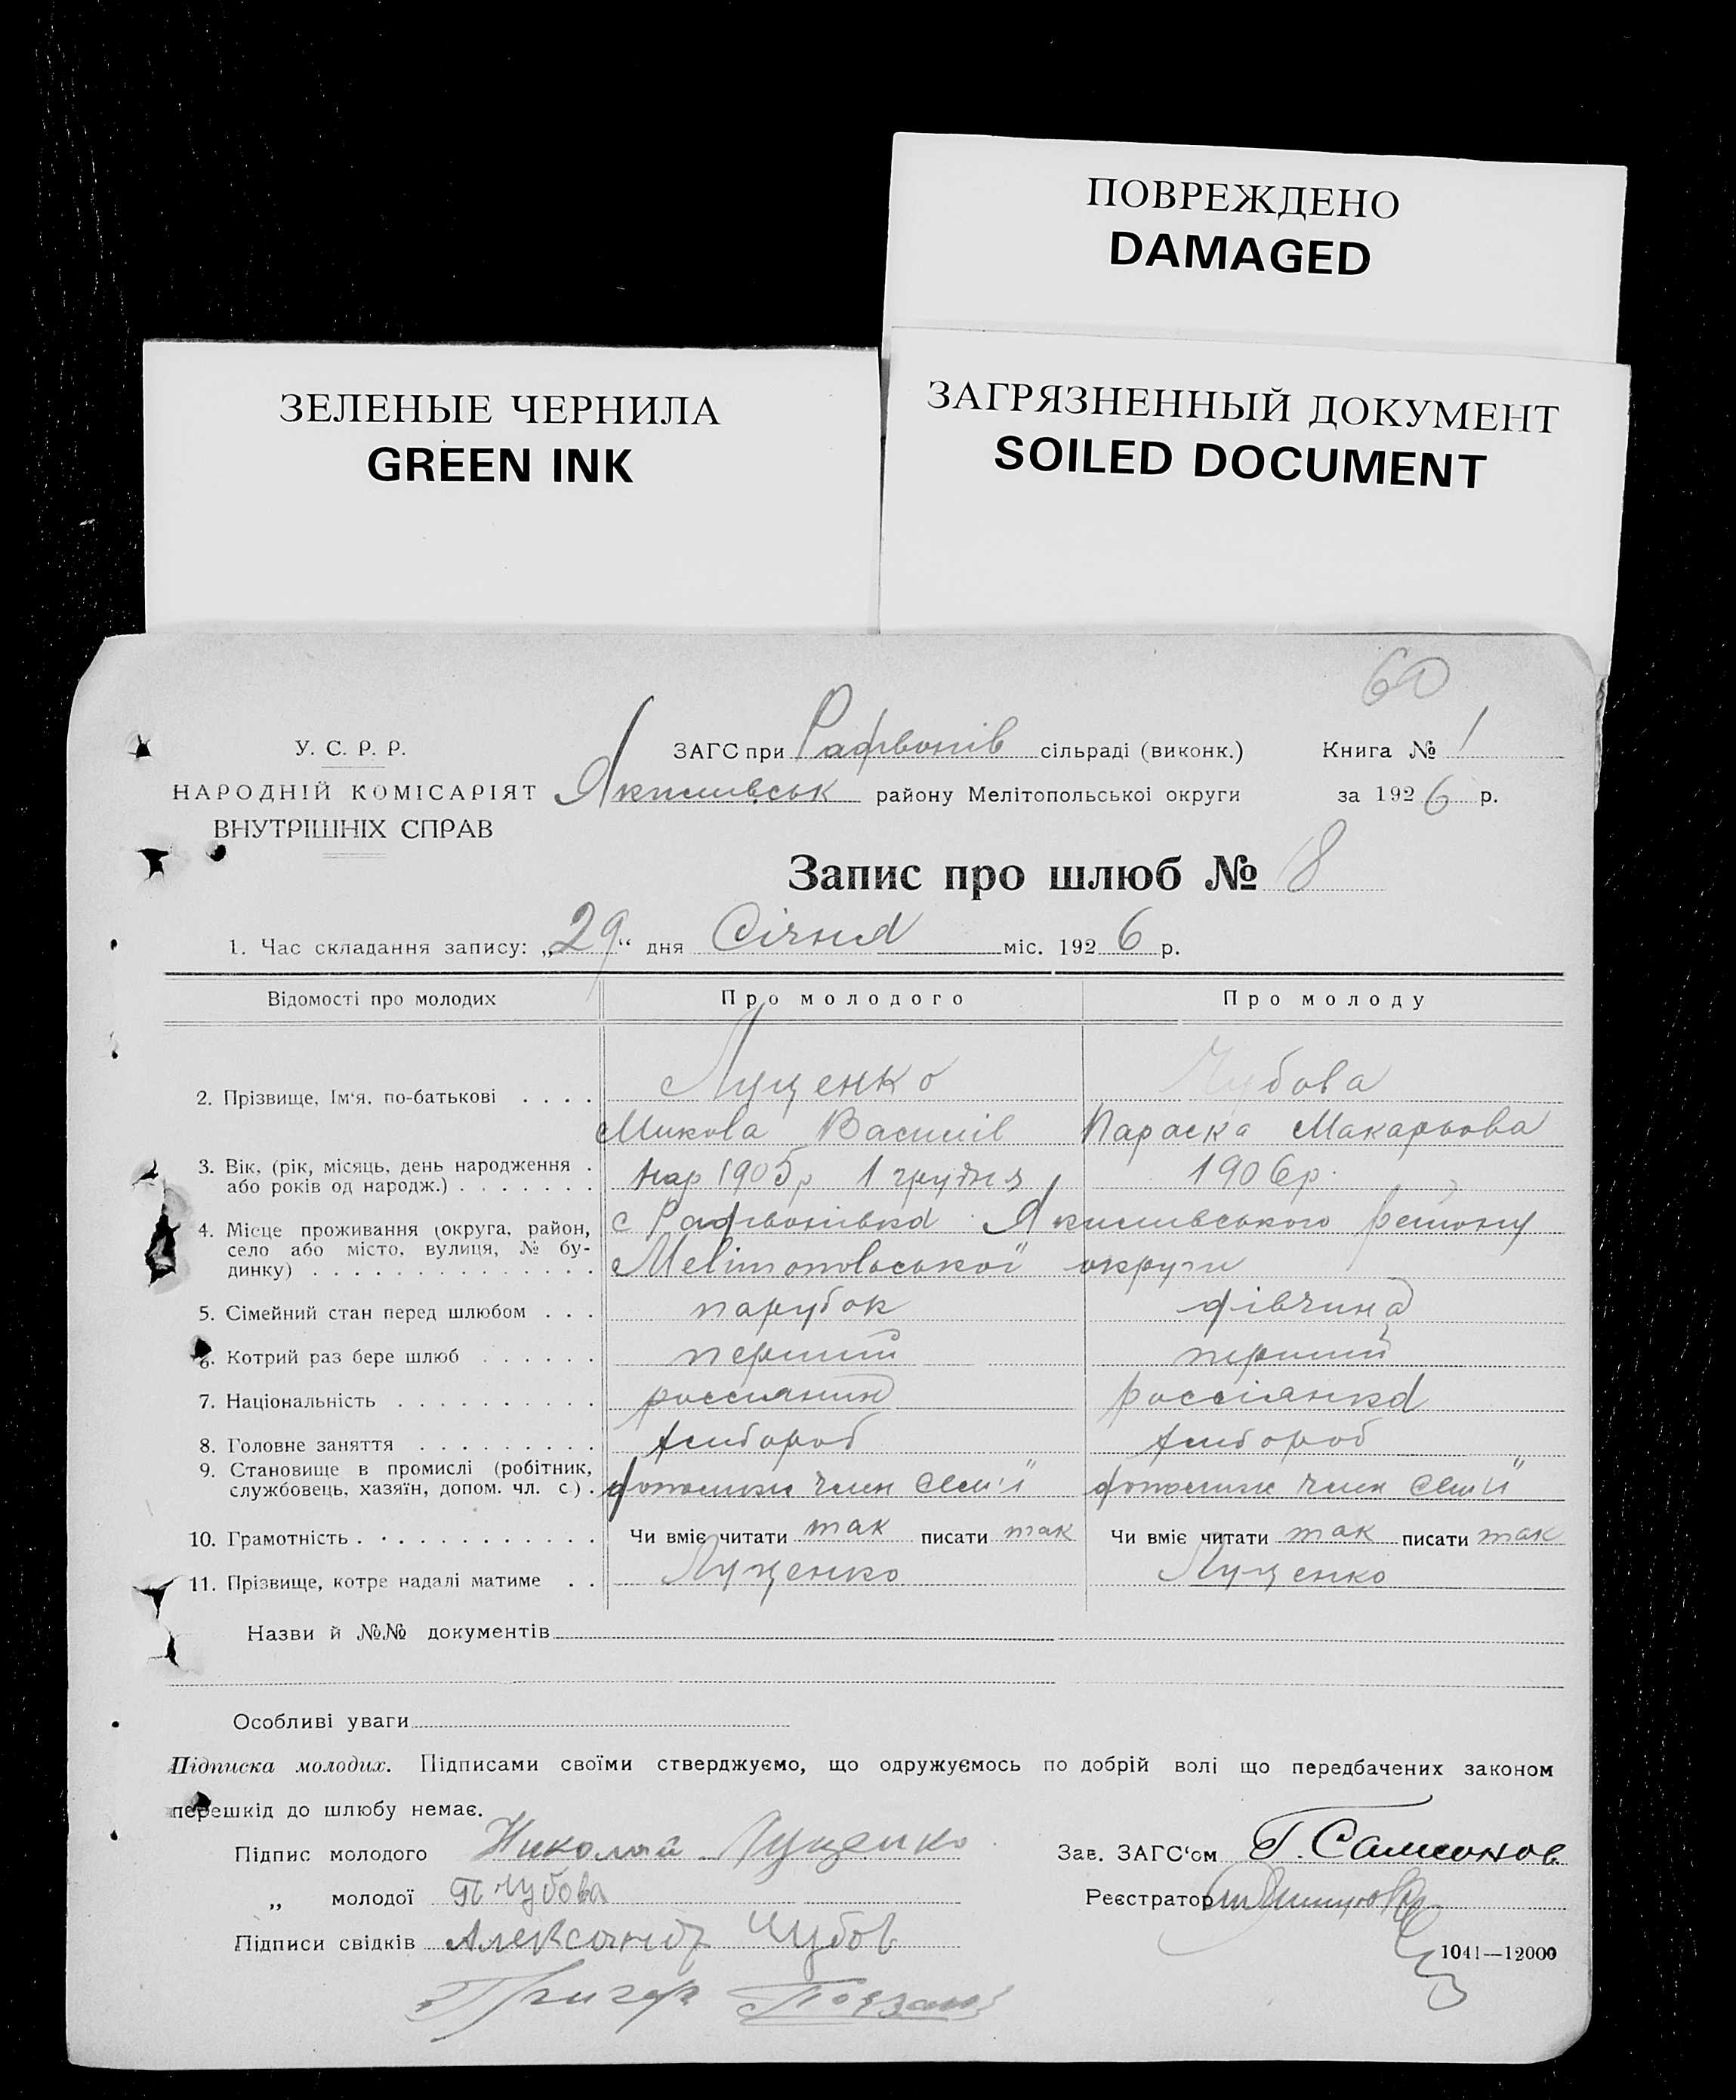 ПОВРЕЖДЕНО
DAMAGED
ЗЕЛЕНЫЕ ЧЕРНИЛА
GREEN INK
ЗАГРЯЗНЕННЫЙ ДОКУМЕНТ
SOILED DOCUMENT
60
У. С. Р. Р.
НАРОДНІЙ КОМІСАРІЯТ
ВНУТРІШНІХ СПРАВ
ЗАГС при сільраді (виконк.)
Книга № 1
району Мелітопольської округи
за 1926 р.
Запис про шлюб № 8
1. Час складання запису: „29“ дня Січня міс. 1926 р.
Відомості про молодих Про молодого Про молоду
2. Прізвище, Ім‘я, по-батькові . . . . Луценко Чубова
Микола Василів Параска Макарьова
3. Вік, (рік, місяць, день народження . нар 1905 р 1 грудня 1906 р.
або років од народж.) . . . . . . .
4. Місце проживання (округа, район, с Якимівського
село або місто, вулиця, № бу-
динку) . . . . . . . . . . . . . . Мелітопольської округи
5. Сімейний стан перед шлюбом . . . парубок дівчина
6. Котрий раз бере шлюб . . . . . . перший перший
7. Національність . . . . . . . . . . россиянин россіянка
8. Головне заняття . . . . . . . . . хлибороб хлибороб
9. Становище в промислі (робітник,
службовець, хазяїн, допом. чл. с.) . член член
10. Грамотність . . . . . . . . . . . Чи вміє читати так писати так Чи вміє читати так писати так
11. Прізвище, котре надалі матиме . . Луценко Луценко
Назви й №№ документів
Особливі уваги
Підписка молодих. Підписами своїми стверджуємо, що одружуємось по добрій волі що передбачених законом
перешкід до шлюбу немає.
Підпис молодого Николай Луценко
Зав. ЗАГС‘ом Г. Самсонов
„ молодої П Чубова
Реєстратор
Підписи свідків Александр Чубов
1041—12000
Григор